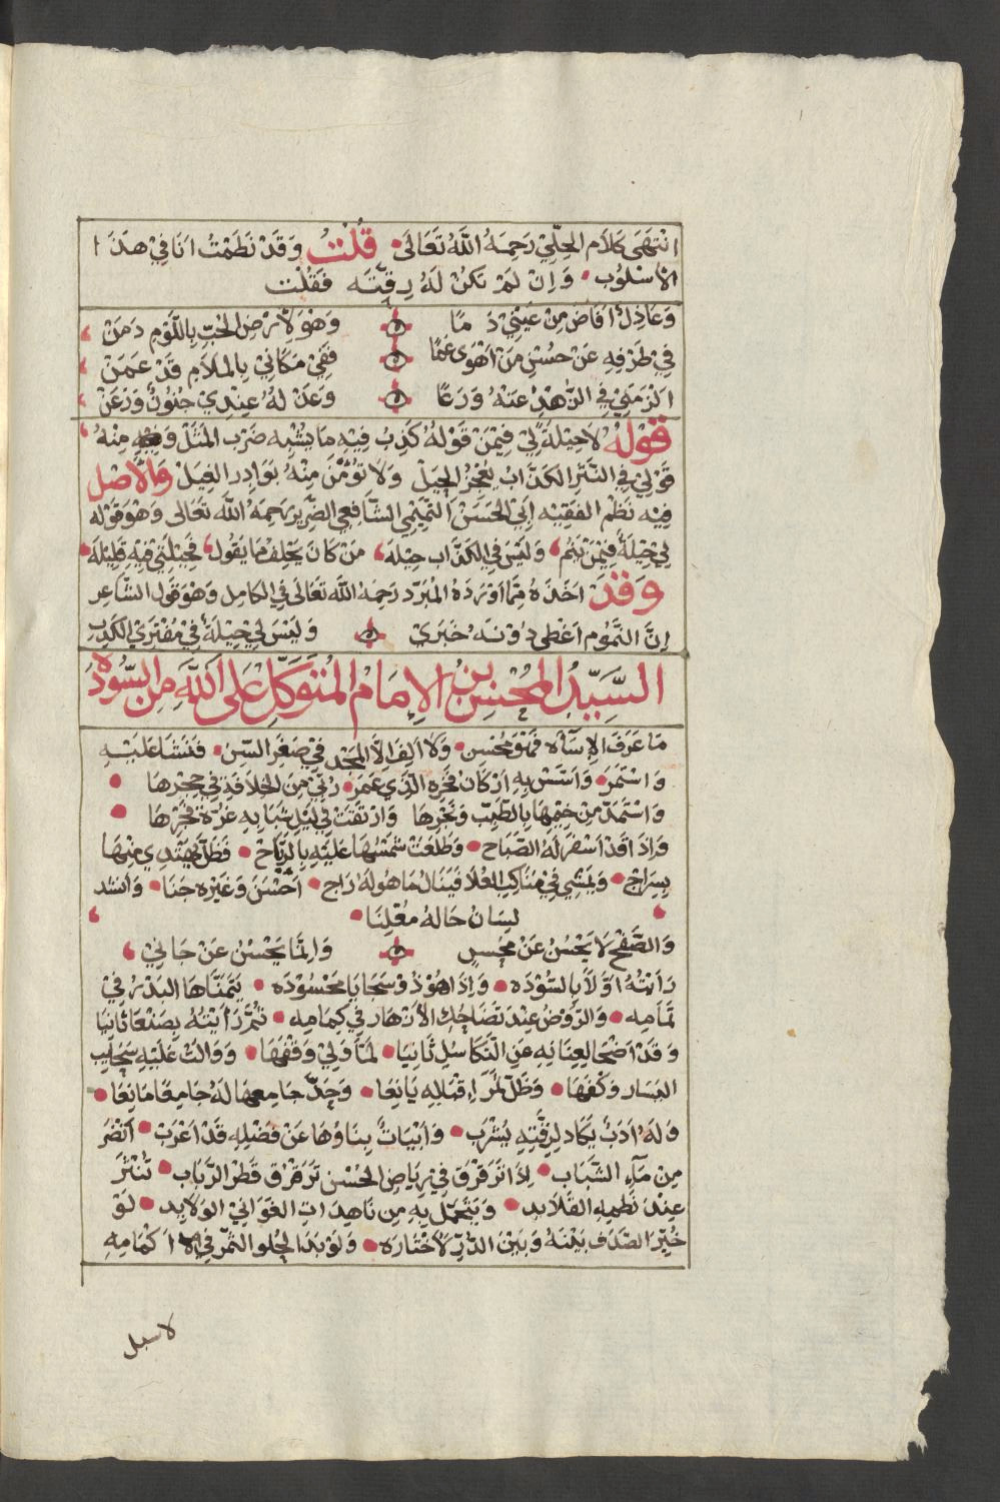 انْتَهَى كَلَام الحِلّي رَحِمَهُ اللَّهُ تَعَالَى قُلْتُ وَقَدْ نَظَمْتُ اَنَا فِيْ هَذَا
الأُسْلُوب وَاِنْ لَمْ تَكُنْ لَهُ رِقَّتَه فَقُلْت
وَعَاذِلٌ اَفَاضَ مِنْ عَيْنِيْ دَ مًا وَهْوَ لِأَرْضِ الحُبِّ بِاللَّوْمِ دَمَنْ
فِيْ طَرْفِهِ عَنْ حُسْنِ مَنْ اَهْوَى عَمًا فَفِيْ مَكَانِيْ بِالمَلَامِ قَدْ عَمَنْ
اَلْزَمَنِيْ فِي الزُّهْدِ عَنْهُ وَرَعًا وَعَنْ لَهُ عِنْدِي جُنُونٌ وَرَعَنْ
قَوْلُهُ لَا حِيْلَةَ لِيْ فِيْمَنْ قَوْلُهُ كَذِبُ فِيْهِ مَا يُشْبِه ضَرْب المَثَل وَ مِنْهُ
قَوْلِيْ فِي النَّثْرِ الكَذَّابُ يُعْجِزُ الحِيَلْ وَلَا تُؤْمَنُ مِنْهُ بَوَادِر الغِيَلْ وَالأَصْل
فِيْهِ نَظْم الفَقِيْه اَبِيْ الحَسَن التَّمِيْمِي الشَّافِعِي الضَّرِيْر رَحِمَهُ اللَّه تَعَالَى وَهْوَ قَوْلُه
لِيْ حِيْلَةٌ فِيْمَنْ يَنُمُّ وَلَيْسَ فِي الكَذَّابِ حِيْلَة مَنْ كَانَ يَخْلِفُ مَا يَقُول فَحِيْلَتِيْ فِيْهِ قَلِيْلَة
وَقَدْ اَخَذَهُ مِمَّا اَوْرَدَهُ المُبَرّد رَحِمَهُ اللَّه تَعَالَى فِي الكَامِل وَهْوَ قَول الشَّاعِر
اِنَّ النَّمُوم اُغَطِّي دُوْنَهُ خَبَرِيْ وَلَيْسَ لِيْ حِيْلَةٌ فِيْ مُفْتَرِيْ الكَذِبِ
السَّيِّدُ المُحْسِنِ بْنِ الإِمَامِ المُتَوَكِّلِ عَلَى اللَّهِ مِنَ السُّودَهْ
مَا عَرَفَ الإِسَآءَه فَهْوَ مُحْسِن وَلَا اَلِفَ إِلَّا المَجْد فِيْ صَغَرِ السّن فَنَشَا عَلَيْهِ
وَاسْتَمَرّ وَاَسَّسَ بِهِ اَرْكَان فَخْرِهِ الَّذِي عَمَر رُبِّيْ مِنَ الخِلَافَةِ فِيْ حِجْرِهَا
وَاسْتَمَدّ مِنْ بِالطَّيِّب وَنَحْرِهَا وَارْتَقَتْ فِيْ لَيْلِ شَبَابِهِ غُرَّة فَجْرِهَا
وَاِذَا قَدْ اَسْفَر لَهُ الصَّبَاح وَطَلَعَتْ شَمْسُهَا عَلَيْهِ بِالرَّبَاح فَظَلّ يَهْتَدِي مِنْهَا
بِسِرَاجْ وَيَمْشِي فِيْ مَنَاكِبِ العُلَا فَيَنَالُ مَا هُوَ لَهُ رَاج اَحْسَنَ وَغَيْره جَنَا وَاَنْشَد
لِسَان حَالهُ مُعْلِنَا
وَالصَّفْحُ لَا يَحْسُنُ عَنْ مُحْسِنٍ وَاِنَّمَا يَحْسُنُ عَنْ جَانِيْ
رَاَيْتُهُ اَوَّلًا بِالسُّوْدَه وَاِذَا هُوَ ذُوْ سَجَايَا مَحْسُوْدَه يَتَمَنَّاهَا البَدْرُ فِيْ
تَمَامِه وَالرَّوْضُ عِنْدَ تَضَاحُك الأَزْهَار فِيْ كِمَامِه ثُمَّ رَاَيْتُهُ بِصَنْعَا ثَانِيَا
وَقَدْ اَضْحَا لِعِنَانِهِ عَنِ التَّكَاسُلِ ثَانِيَا لَمَّا وَلِيْ وَقْفَهَا وَوَالَتْ عَلَيْهِ سَحَايِب
اليَسَار وَكْفَهَا وَظَلّ ثَمَرُ اِقْبَالِهِ يَانِعَا وَجَدَّ جَامِعهَا لَهُ جَامِعًا مَانِعَا
وَلَهُ اَدَبٌ يَكَاد لِرِقَّتِهِ يُشْرَب وَاَبْيَاتٌ بِنَاؤُهَا عَنْ فَضْلِهِ قَدْ اَعْرَبْ اَنْضَرُ
مِنْ مَآءِ الشَّبَاب اِذَا تَرَقْرَقَ فِيْ رِيَاضِ الحُسْن تَرَقْرُق قَطْر الرَّبَاب تُنْثَرُ
عِنْدَ نَظْمِهِ القَلَايِد وَيَتَجَمَّل بِهِ مِن نَاهِدَاتِ الغَوَانِيْ الوَلَايِد لَوْ
خُيِّرَ الصَّدَف بَيْنَهُ وَبَيْنَ الدُّرّ لَاخْتَارَه وَلَوْ بَدَا لِحُلْو الثَّمَر فِي اَكْمَامِهِ